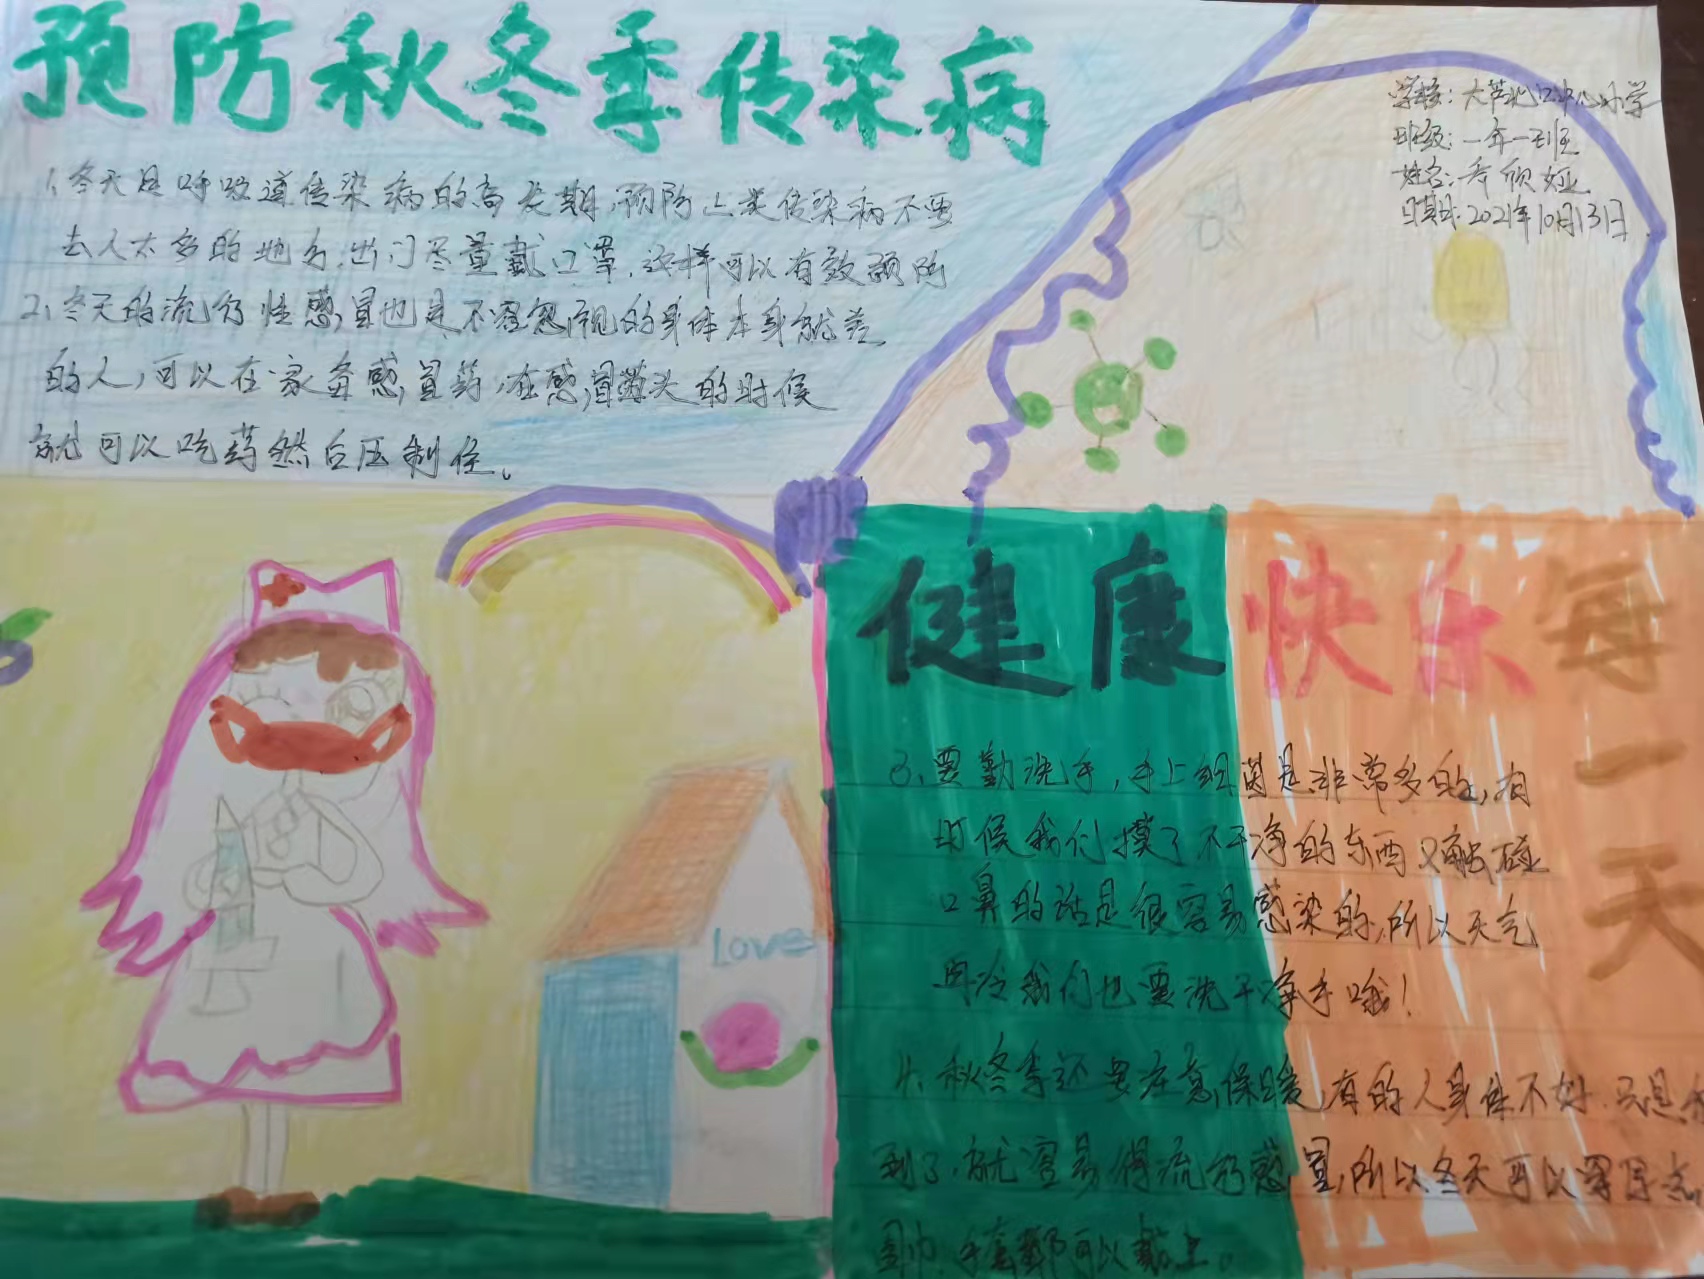 预防秋冬季传染病
学校:大芦北口中心小学
班级:一年一班
姓名:乔欣娅
日期:2021年10月13日
1、冬天是呼吸道传染病的高发期,预防上类传染病不要
去人太多的地方,出门尽量戴口罩,这样可以有效预防
2、冬天的流行性感冒也是不容忽视的身体本身就差
的人,可以在家备感冒药,在感冒苗头的时候
就可以吃药然后压制住。
健康快乐每一天
Love
3、要勤洗手,手上细菌是非常多的,有
时候我们摸了不干净的东西又触碰
口鼻的话是很容易感染的,所以天气
再冷我们也要洗干净手哦!
4、秋冬季还要注意保暖,有的人身体不好.只要
到了,就容易得流行感冒,所以冬天可以穿厚点
围巾、手套都可以戴上。